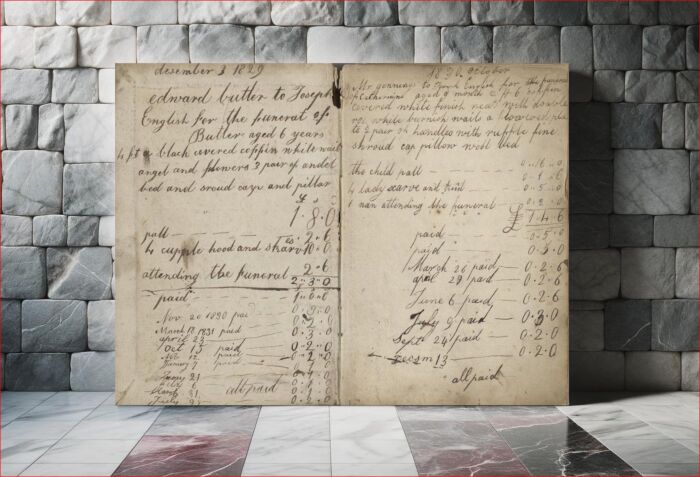 desember 3 1829
edward butler to Joseph
English for the funeral of
Butler aged 6 years
4 ft a black covered coppin white wait
angel and flowers 3 pair of andel
bed and sroud capp and pillar
£ s
1 . 8 . 0
pall - - - 2 - 6
4 cupple hood and sharv 10 = 0
attending the funeral 2 = 6
2 = 3 = 0
paid 1 = 0 = 0
Nov 20 1830 pai
March 18. 1831 paid
april 23
Oct 15 paid 0 = 2 = 0
Nov 12 paid
January 7 paid
Jany 21
March 31
all paid
July 0 = 2 = 0
1830 October
Mr gennings to Josph English for the funeral
of Catherine aged 9 month
covered white finish neat well double
white burnish waits a flowered pla
te 3 pair of handles with ruffle fine
shroud cap pillow well bed
the child pall 0 . 16 . 0
4 lady scarve and hud 0 - 5 . 0
1 man attending the funeral
£ 1 . 4 . 6
paid 0 . 5 . 0
paid 0 . 5 . 0
March 26 paid 0 . 2 . 6
april 29 paid 0 . 2 . 6
June 6 paid 0 . 2 . 6
July 9 paid
Sept 24 paid 0 . 2 . 0
13 0 . 2 . 0
all paid